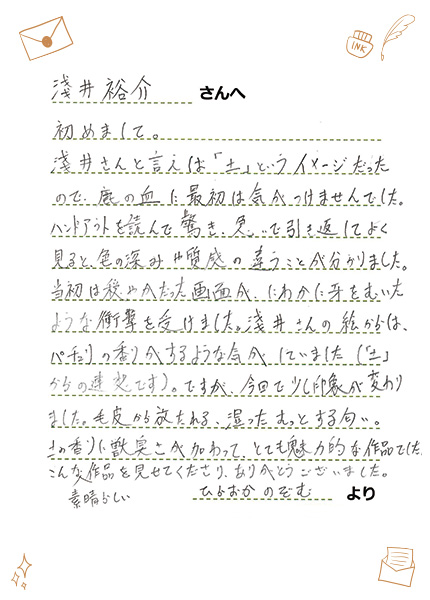 INK
淺井裕介 さんへ
初めまして。
淺井さんと言えば「土」というイメージだった
ので、鹿の血に最初は気がつけませんでした。
ハンドアウトを読んで驚き、急いで引き返してよく
見ると、色の深みや質感の違うことが分かりました。
当初は穏やかだった画面が、にわかに牙をむいた
ような衝撃を受けました。淺井さんの絵からは、
パチュリの香りがするような気がしていました（「土」
からの連想です）。ですが、今回で少し印象が変わり
ました。毛皮から放たれる、湿ったむっとする匂い。
土の香りに獣臭さが加わって、とても魅力的な作品でした。
こんな作品を見せてくださり、ありがとうございました。
素晴らしい
ひらおか のぞむ より